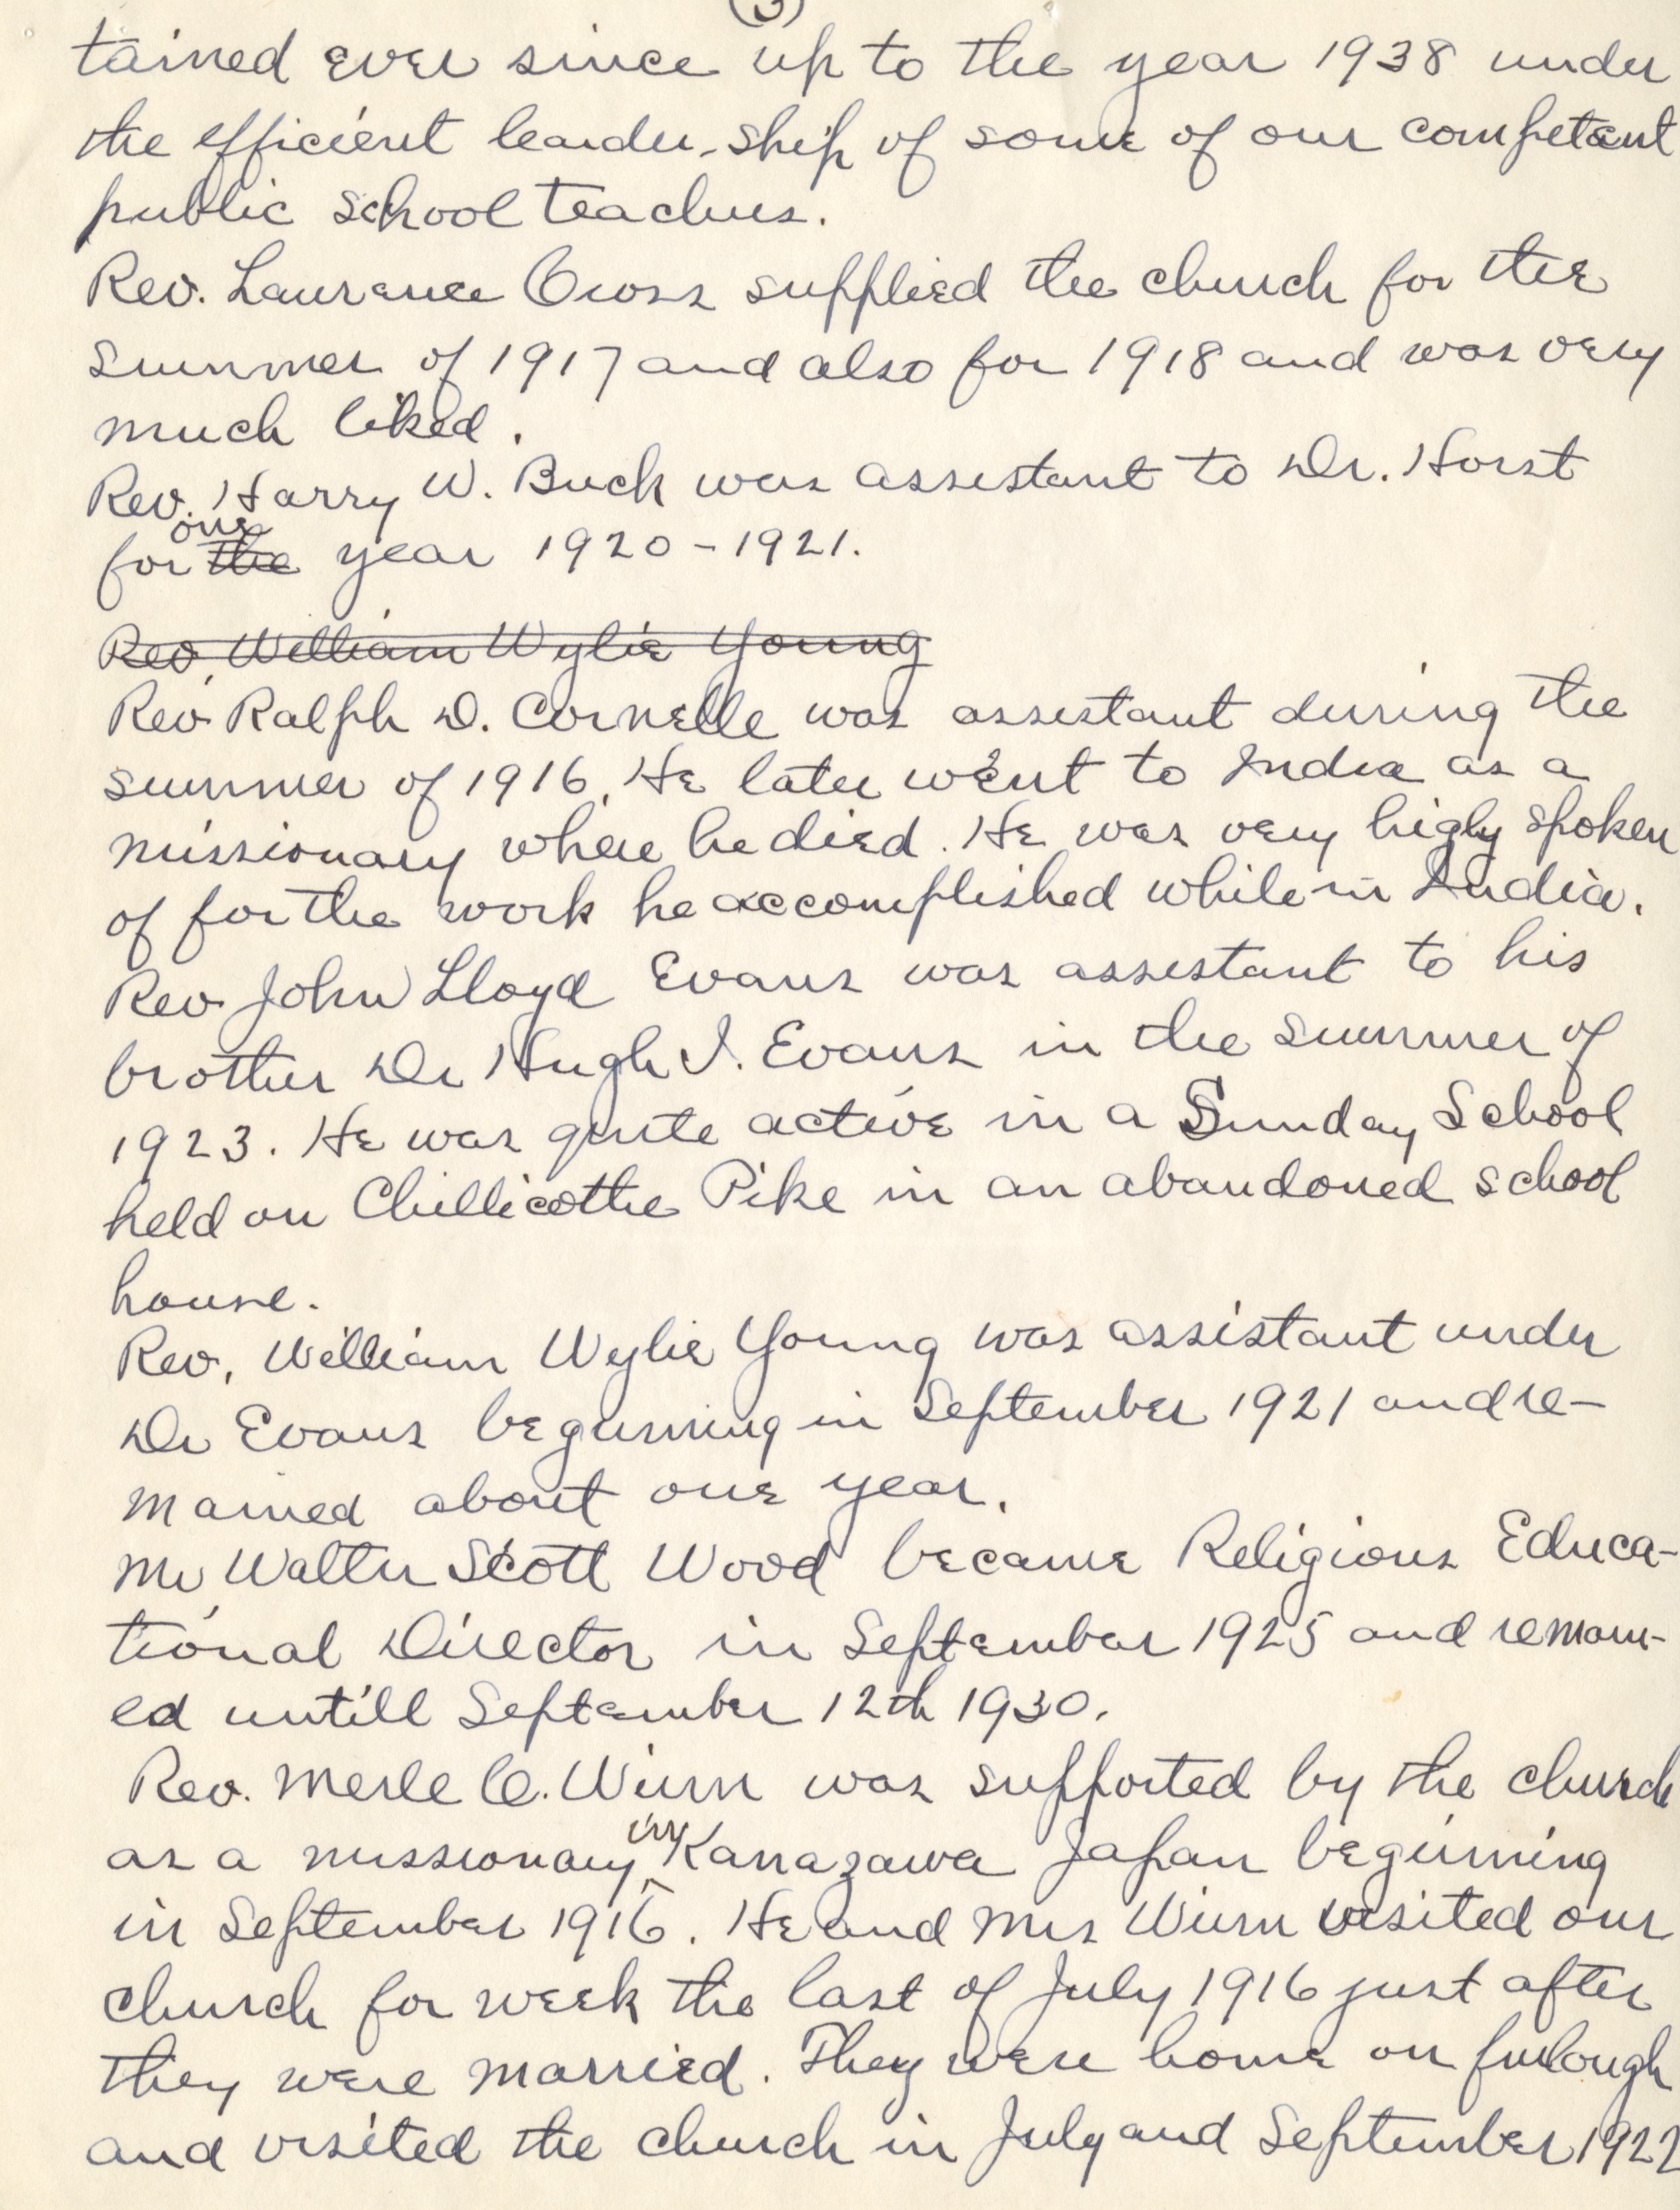 (3)
tained ever since up to the year 1938 under
the efficient leader-ship of some of our competant
public school teachers.
Rev. Laurance Cross supplied the church for the
summer of 1917 and also for 1918 and was very
much liked.
Rev. Harry W. Buck was assistant to Dr. Horst
one
for the year 1920-1921.
Rev William Wylie Young
Rev. Ralph D. Cornelle was assistant during the
summer of 1916. He later went to India as a
missionary where he died. He was very higly spoken
of for the work he accomplished while in India.
Rev John Lloyd Evans was assistant to his
brother Dr Hugh I. Evans in the summer of
1923. He was quite active in a Sunday School
held on Chillicothe Pike in an abandoned school
house.
Rev. William Wylie Young was assistant under
Dr Evans beginning in September 1921 and re-
mained about one year.
Mr, Walter Scott Wood became Religious Educa-
tional Director in September 1925 and remain-
ed untill September 12th 1930.
Rev. Merle C. Winn was supported by the church
in
as a missionary ^ Kanazawa Japan beginning
in September 1916. He and Mrs Winn visited our
church for week the last of July 1916 just after
they were married. They were home on furlough
and visited the church in July and September 1922